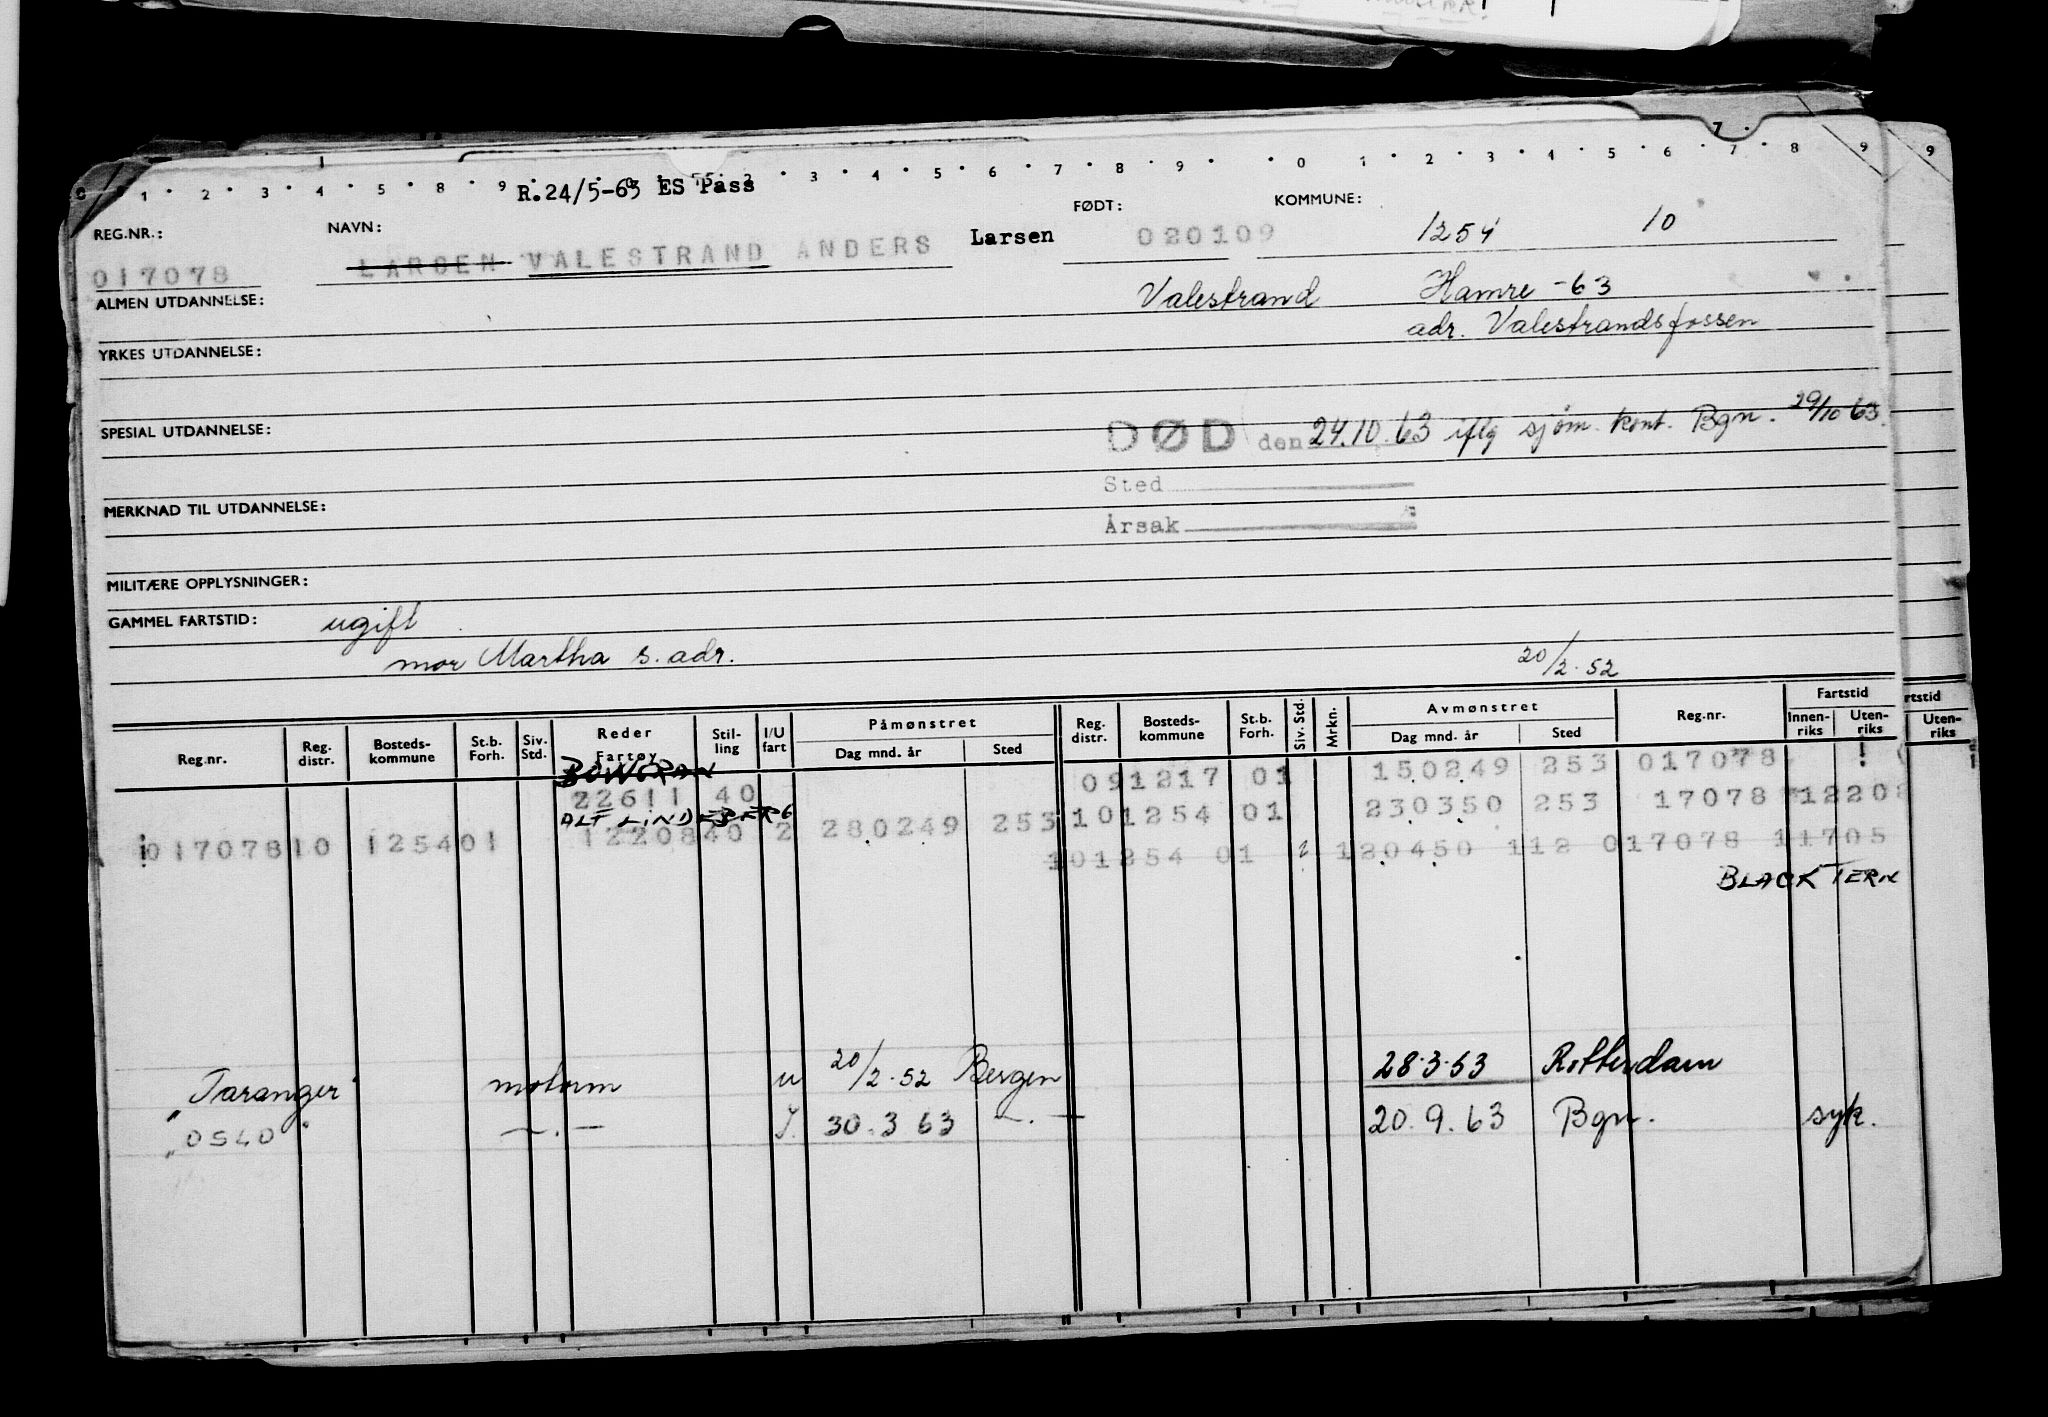 0 1 2 3 4 5 8 9 0 2 3 4 5 6 7 8 9 0 1 2 3 4 5 6 7 8 9 9
R.24/5-63 ES Pass
REG.NR.: NAVN: FØDT: KOMMUNE:
017078 LARSEN VALESTRAND ANDERS Larsen 020109 1254 10
ALMEN UTDANNELSE: Valestrand Hamre -63
adr. Valestrandsfossen
YRKES UTDANNELSE:
SPESIAL UTDANNELSE: DØD den 24.10.63 iflg sjøm. kont. Bgn. 29/10 63.
Sted
MERKNAD TIL UTDANNELSE:
Årsak
MILITÆRE OPPLYSNINGER:
GAMMEL FARTSTID: ugift
mor Martha s. adr.
20/2.52
Reg.nr. Reg. distr. Bosteds-kommune St.b. Forh. Siv. Std. Reder Fartøy Stil-ling I/U fart Påmønstret Dag mnd. år Sted Reg. distr. Bosteds-kommune St.b. Forh. Siv. Std. Mrkn. Avmønstret Dag mnd. år Sted Reg.nr. Fartstid Innen-riks Uten-riks
rtstid Uten-riks
BOWGRAN 091217 01 150249 253 017078
22611 40 101254 01 230350 253 17078 12208
ALF LINDEBERG
017078 10 1254 01 12208 40 2 280249 253
101254 01 120450 112 017078 11705
BLACK TERN
"Taranger" motorm u 20/2.52 Bergen 28.3.53 Rotterdam
"OSLO" —.— I. 30.3 63 —.— 20.9.63 Bgn. syk.